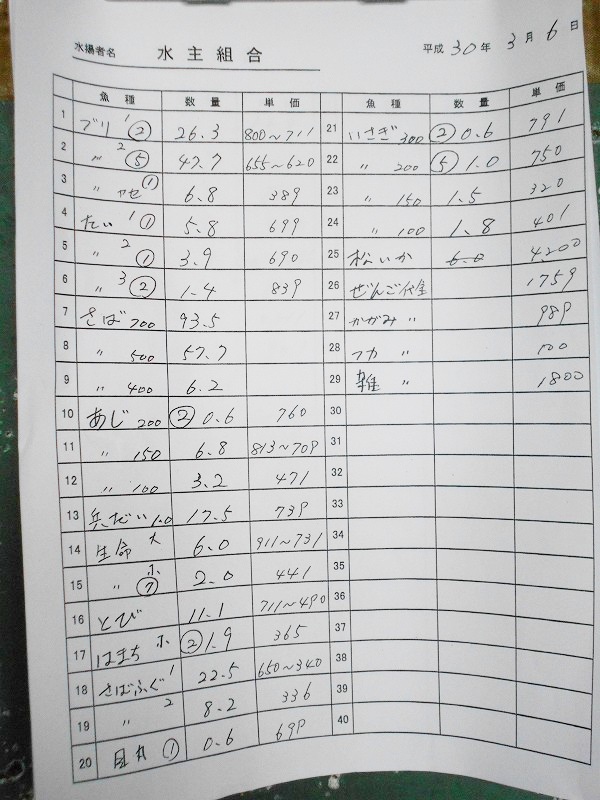 水揚者名 水主組合 平成 30 年 3 月 6 日
魚種 数量 単価
1 ブリ 1 ② 26.3 800~711
2 〃 2 ⑤ 47.7 655~620
3 〃 ヤセ ① 6.8 389
4 たい 1 ① 5.8 699
5 〃 2 ① 3.9 690
6 〃 3 ② 1.4 839
7 さば 700 93.5
8 〃 500 57.7
9 〃 400 6.2
10 あじ 200 ② 0.6 760
11 〃 150 6.8 813~709
12 〃 100 3.2 471
13 兵だい 1.0 17.5 739
14 生命 大 6.0 911~731
15 〃 小 ⑦ 2.0 441
16 とび 11.1 711~490
17 はまち 小 ② 1.9 365
18 さばふぐ 1 22.5 650~340
19 〃 2 8.2 336
20 ① 0.6 699
魚種 数量 単価
21 いさぎ 300 ② 0.6 791
22 〃 200 ⑤ 1.0 750
23 〃 150 1.5 320
24 〃 100 1.8 401
25 松いか 4200
26 ぜんご代金 1759
27 かがみ 〃 989
28 フカ 〃 100
29 雑 〃 1800
30
31
32
33
34
35
36
37
38
39
40